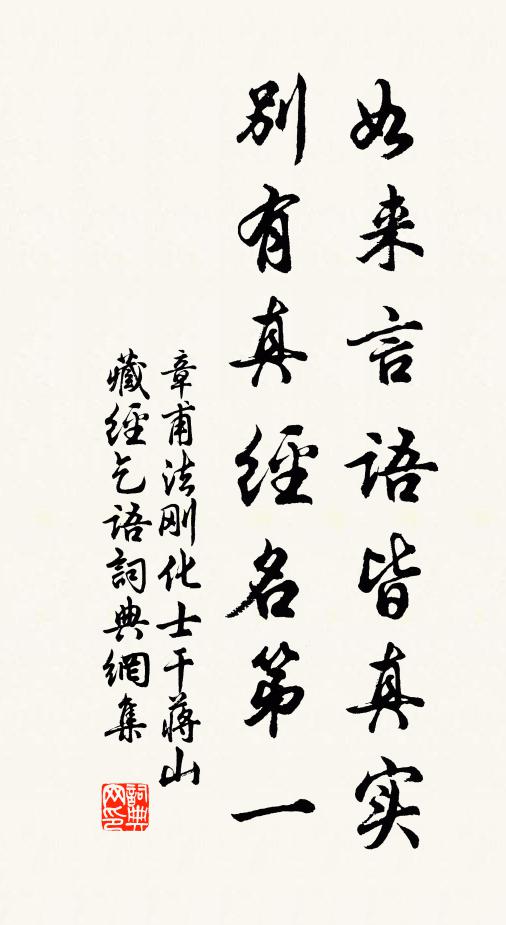 如来言语皆真实
别有真經名第一
章甫法刚化士干蒋山
藏經乞语詞典網集
詞典网印